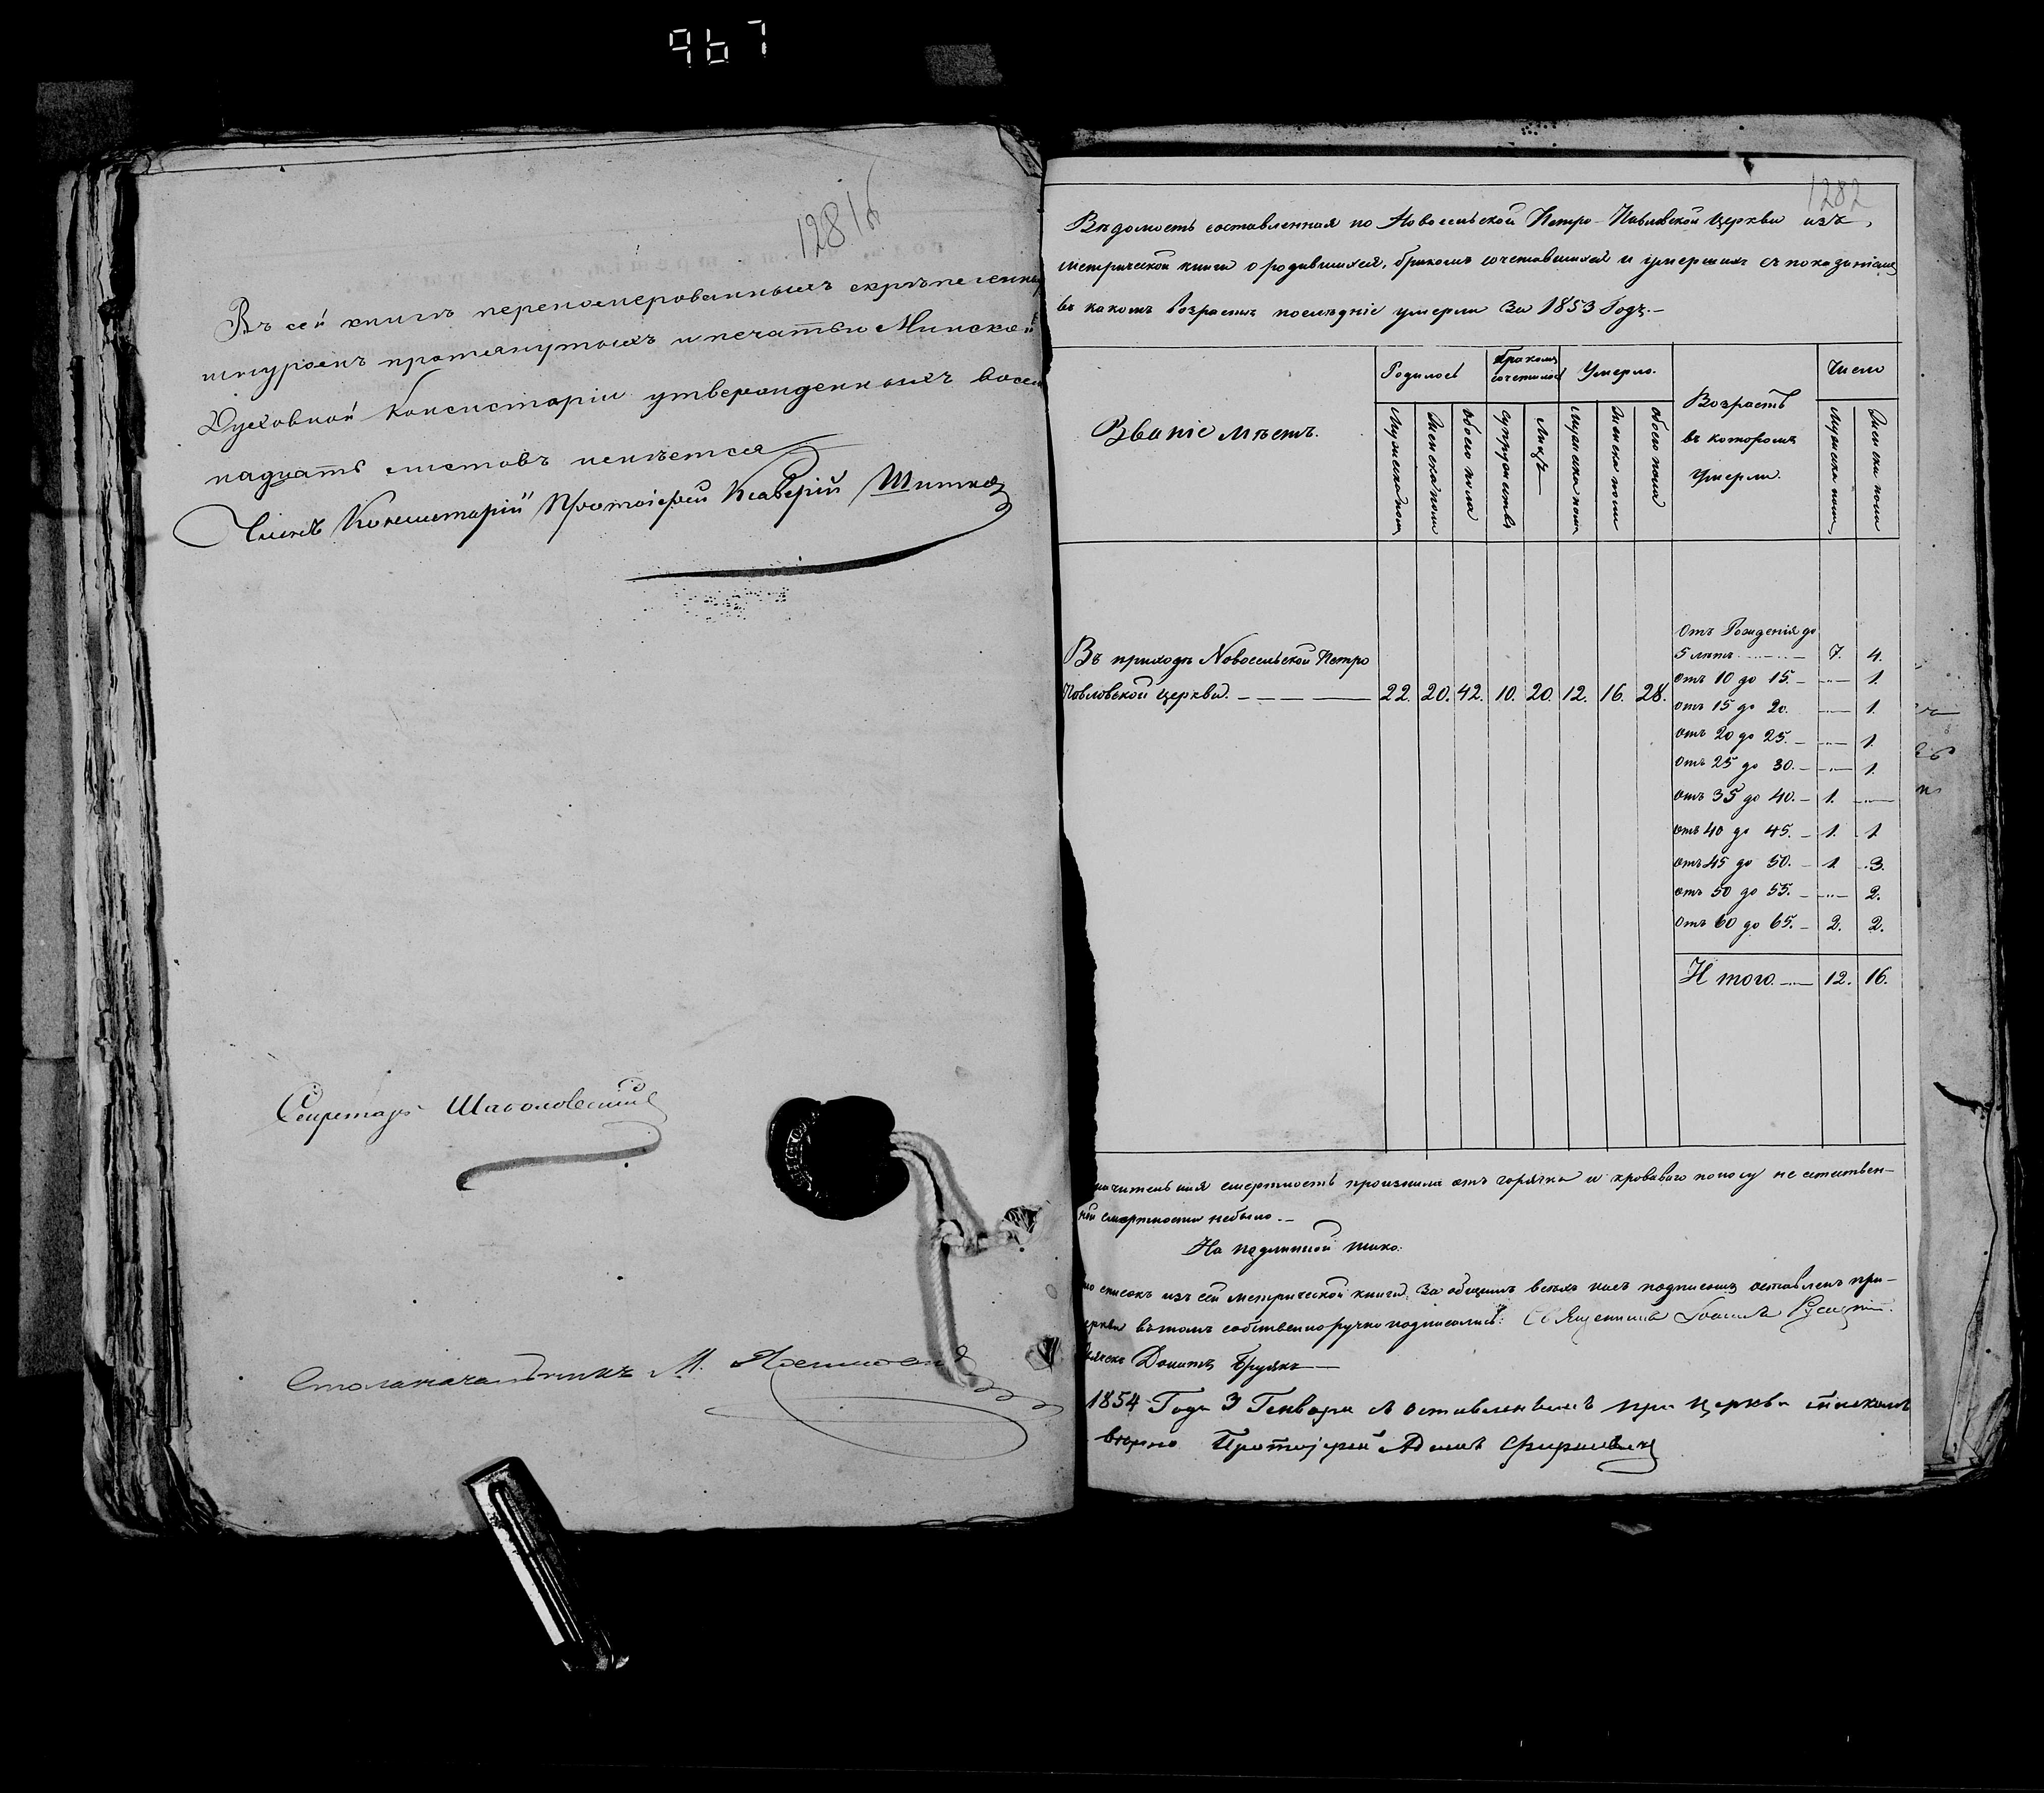 967
1281б
Въ сей книгѣ перенумерованныхъ скрѣпленны
шнуромъ протянутыхъ и печатью Минской
Духовной Консисторіи утвержденныхъ восем
надцать листовъ имѣется
Членъ Консисторіи Протоіерей
Секретарь
Столоначальникъ М.
1282
Вѣдомость составленная по Новосельской Петро-Павловской Церкви изъ
метрической книги о родившихся, бракомъ сочетавшихся и умершихъ съ показаніемъ
въ какомъ возрастѣ послѣдніе умерли за 1853 Годъ.
Званіе мѣстъ.
Родилось
Бракомъ сочеталось
Умерло.
Возрастъ въ которомъ умерли.
Число
Мужеска пола
Женска пола
Обоего пола
Супружествъ
Лицъ
Мужеска пола
Женска пола
Обоего пола
Мужеска пола
Женска пола
Въ приходѣ Новосельской Петро
Павловской Церкви. 22. 20. 42. 10. 20. 12. 16. 28.
Отъ Рожденія до
5 лѣтъ 7. 4.
Отъ 10 до 15. — 1.
Отъ 15 до 20. — 1.
Отъ 20 до 25. — 1.
Отъ 25 до 30. — 1.
Отъ 35 до 40. 1. —
Отъ 40 до 45. 1. 1.
Отъ 45 до 50. 1. 3.
Отъ 50 до 55. — 2.
Отъ 60 до 65. 2. 2.
Итого 12. 16.
смертность произошла отъ горячки и кроваваго поносу не естествен-
ной смертности небыло.
На подлинной тако:
списокъ изъ сей метрической книги за общимъ всѣхъ насъ подписомъ оставленъ при
Церкви вътомъ собственноручно подписались: Священникъ Іоаннъ
Донатъ
1854 Года 3 Генваря съ оставленнымъ при Церкви спискомъ
вѣрно Протоіерей Адамъ